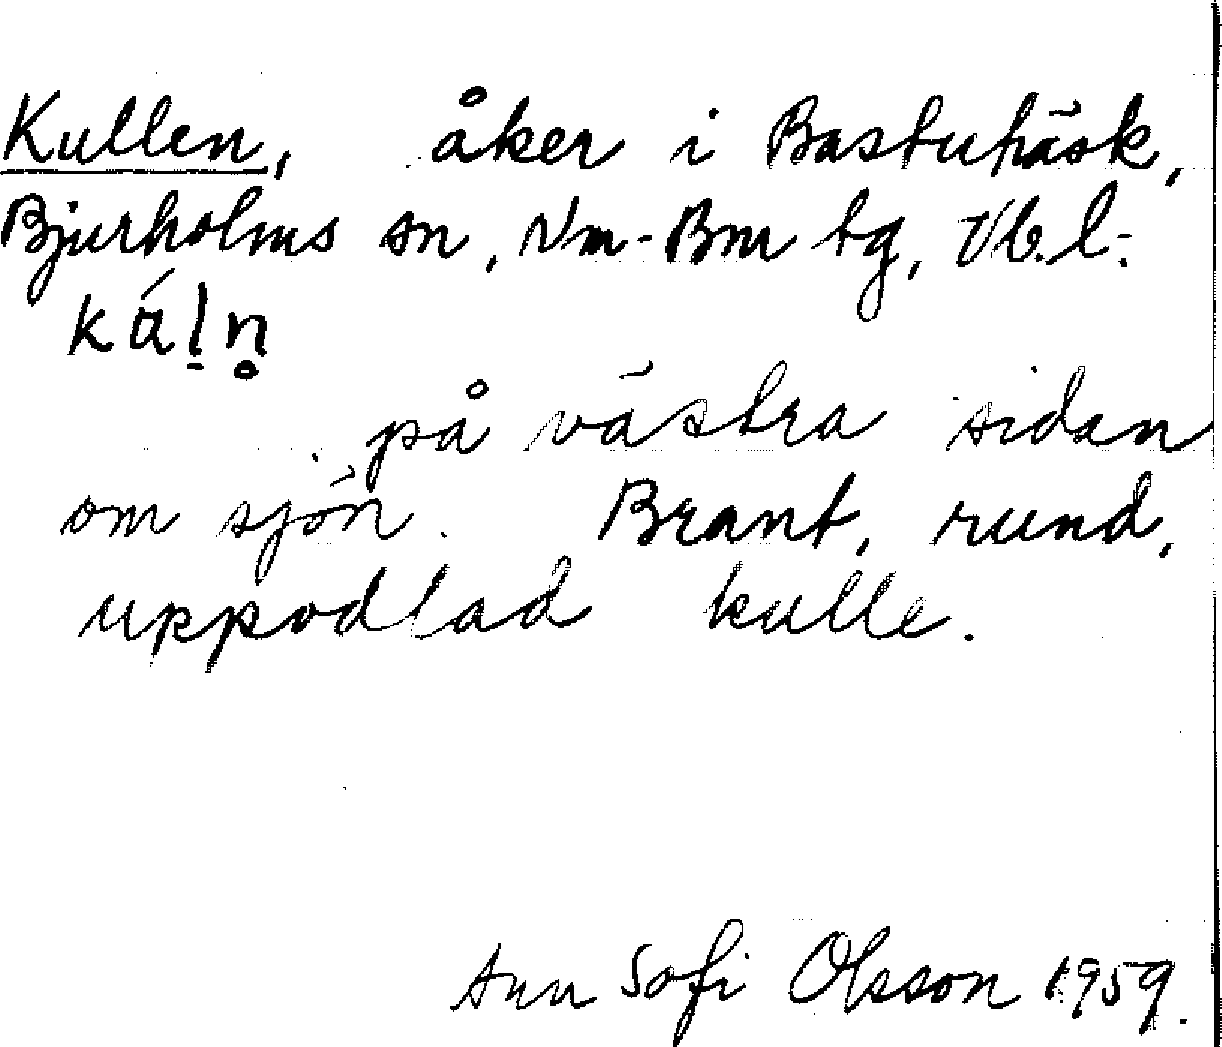 Kullen, åker i Bastuträsk,
Bjurholms sn, Nm-Bm tg, Vb. l.:
kál̠n̥
på västra sidan
om sjön. Brant, rund,
uppodlad kulle.
Ann Sofi Olsson 1959.